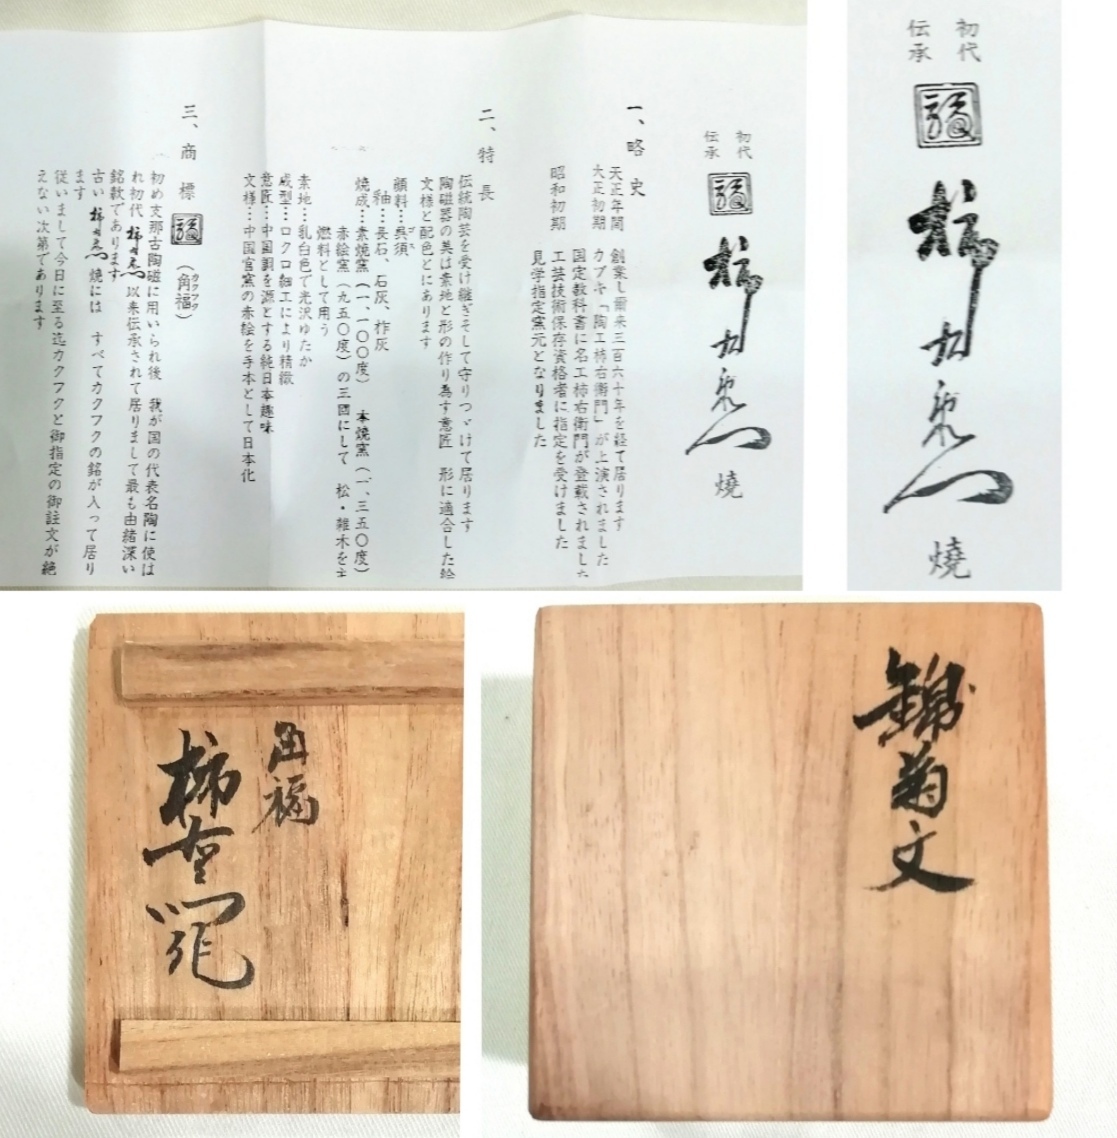 初代
伝承
福
柿右衛門
焼
一、略史
天正年間 創業し爾来三百六十年を経て居ります
大正初期 カブキ「陶工柿右衛門」が上演されました
国定教科書に名工柿右衛門が登載されました
昭和初期 工芸技術保存資格者に指定を受けました
見学指定窯元となりました
二、特長
伝統陶芸を受け継ぎそして守りつゞけて居ります
陶磁器の美は素地と形の作り為す意匠 形に適合した絵
文様と配色とにあります
顔料…呉須
ゴス
釉…長石、石灰、柞灰
焼成…素焼窯(一、一〇〇度) 本焼窯(一、三五〇度)
赤絵窯(九五〇度)の三回にして 松・雑木を主
燃料として用う
素地…乳白色で光沢ゆたか
成型…ロクロ細工により精緻
意匠…中国調を源とする純日本趣味
文様…中国官窯の赤絵を手本として日本化
三、商標 福(角福)
カクフク
初め支那古陶磁に用いられ後 我が国の代表名陶に使は
れ初代柿右衛門以来伝承されて居りまして最も由緒深い
銘款であります
古い柿右衛門焼には すべてカクフクの銘が入って居り
ます
従いまして今日に至る迄カクフクと御指定の御註文が絶
えない次第であります
初代
伝承
福
柿右衛門
焼
角福
柿右衛門作
錦菊文